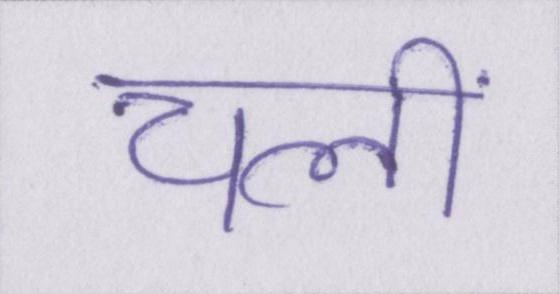 चलीं